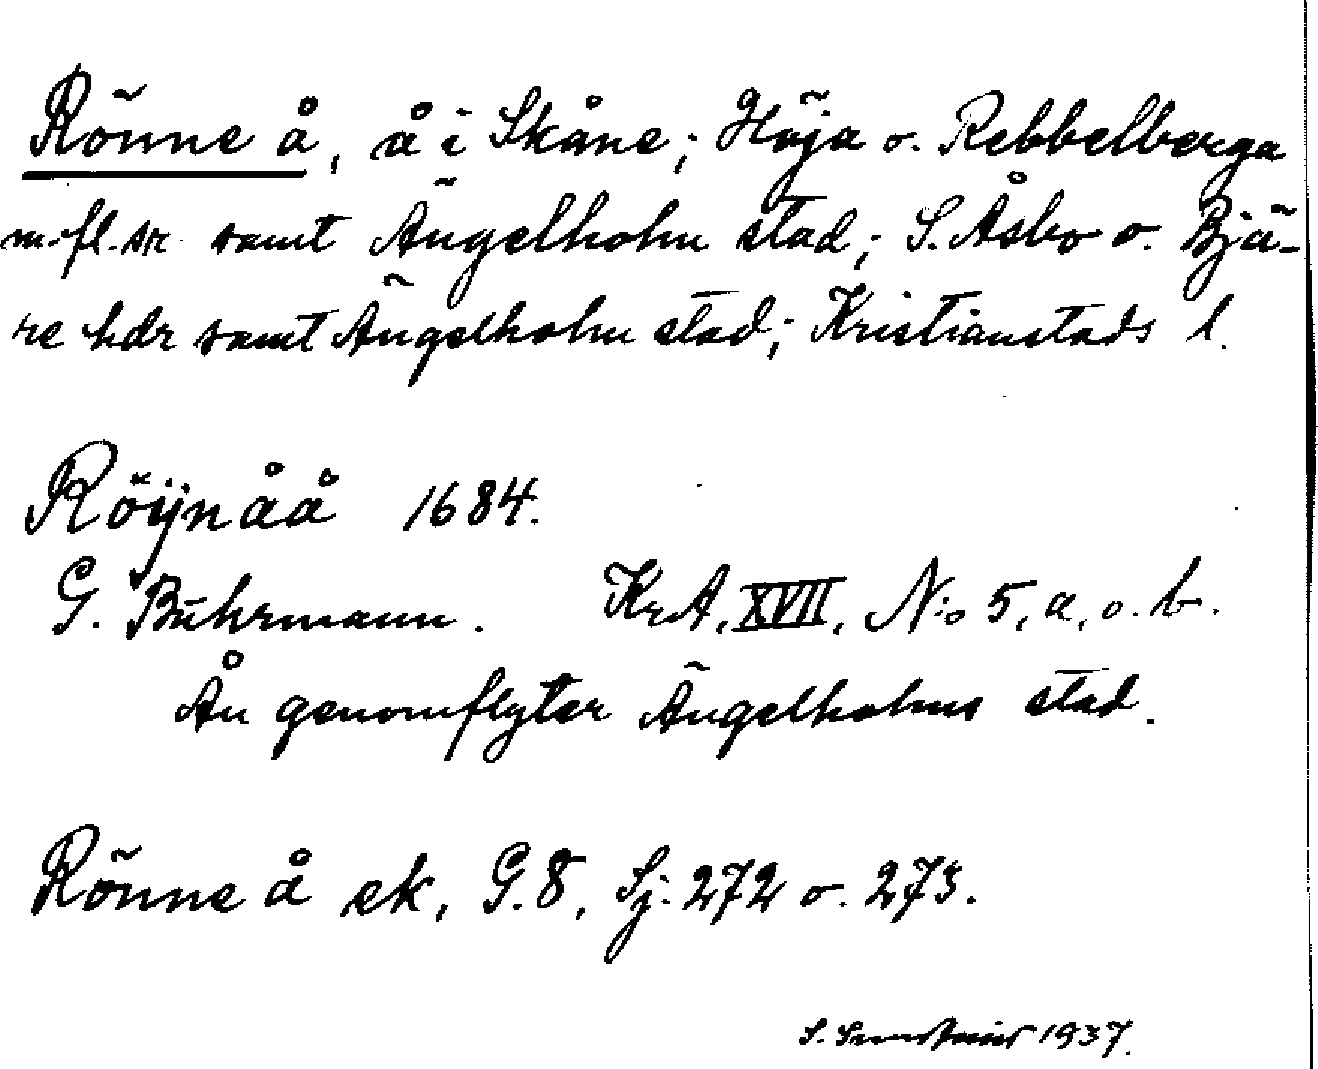 Rönne å, å i Skåne; Höja o. Rebbelberga
m. fl. snr samt Ängelholm stad; S. Åsbo o. Bjä-
re hdr samt Ängelholm stad; Kristianstads l.
Röÿnåå 1684.
G. Buhrmann. KrA, XVII, N:o 5, a, o. b.
Ån genomflyter Ängelholms stad.
Rönne å ek, G. 8, Sj. 272 o. 273.
S. 1937.